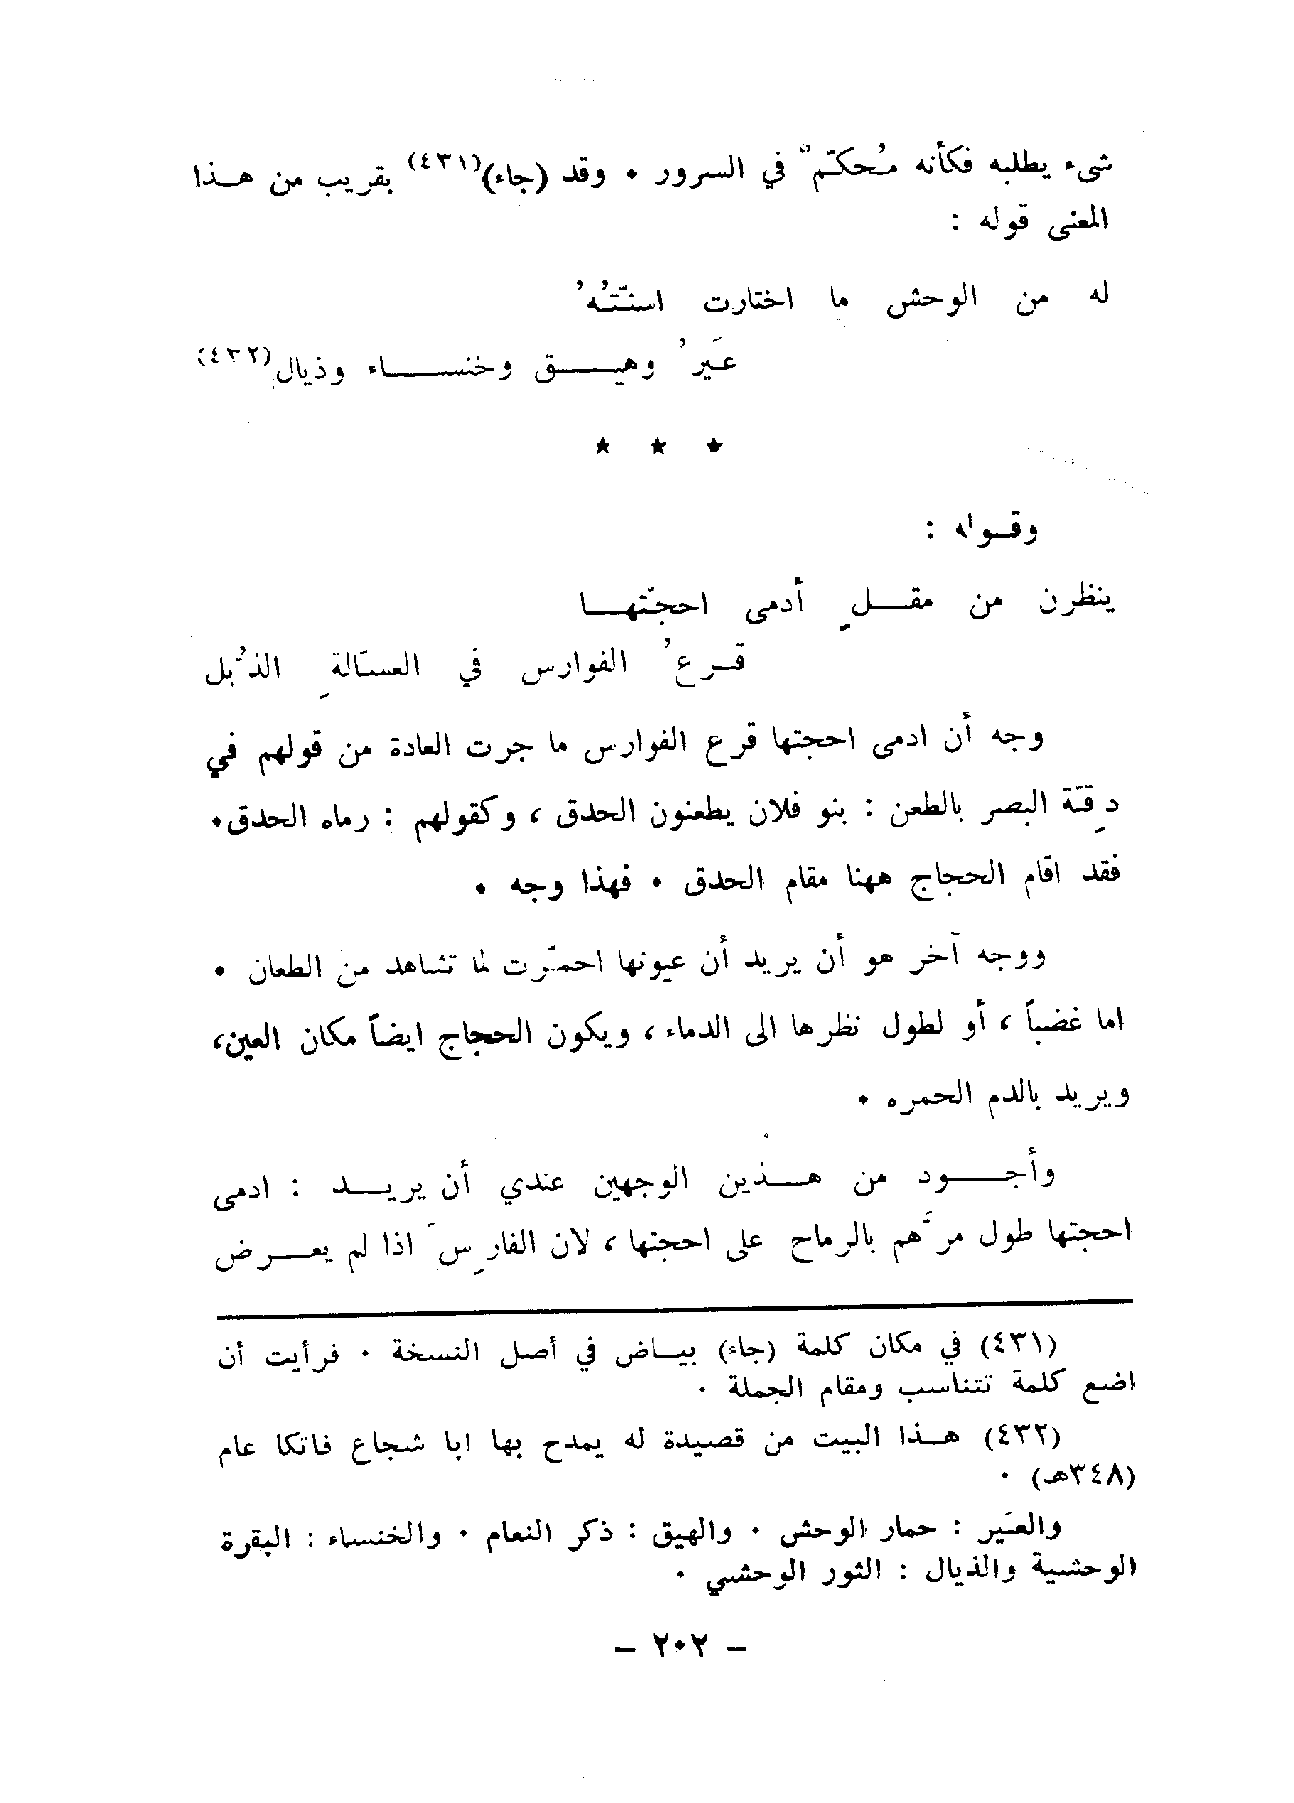 شىء يطلبه فكأنه مُحكّمٌ في السرور ٠ وقد (جاء)(٤٣١) بقريب من هـذا
المعنى قوله :
له من الوحش ما اختارت اسنّتُهُ
عَيرُ وهيـق وخنسـاء وذيال(٤٣٢)
★ ★ ★
وقـوله :
ينظرن من مقـلٍ أدمى احجّتهـا
قـرعُ الفوارس في العسّالةِ الذُبل
وجه أن ادمى احجتها قرع الفوارس ما جرت العادة من قولهم في
دِقّة البصر بالطعن : بنو فلان يطعنون الحدق ، وكقولهم : رماه الحدق٠
فقد اقام الحجاج ههنا مقام الحدق ٠ فهذا وجه ٠
ووجه آخر هو أن يريد أن عيونها احمّرت لما تشاهد من الطعان ٠
اما غضباً ، أو لطول نظرها الى الدماء ، ويكون الحجاج ايضاً مكان العين،
ويريد بالدم الحمره ٠
وأجـود من هـذين الوجهين عندي أن يريـد : ادمى
احجتها طول مرَّهم بالرماح على احجتها ، لان الفارِسَ اذا لم يعـرض
(٤٣١) في مكان كلمة (جاء) بيـاض في أصل النسخة ٠ فرأيت أن
اضع كلمة تتناسب ومقام الجملة ٠
(٤٣٢) هـذا البيت من قصيدة له يمدح بها ابا شجاع فاتكا عام
(٣٤٨هـ) ٠
والعَير : حمار الوحش ٠ والهيق : ذكر النعام ٠ والخنساء : البقرة
الوحشية والذيال : الثور الوحشي ٠
– ٢٠٢ –